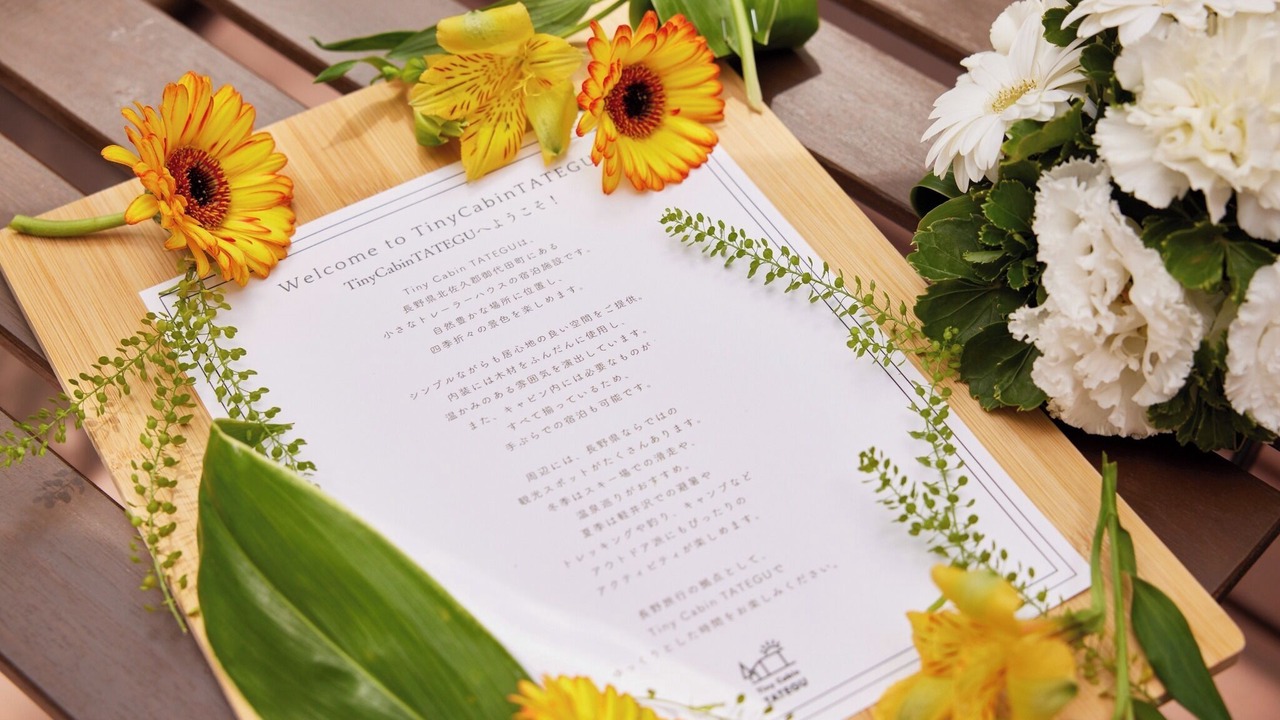 Welcome to TinyCabinTATEGU
TinyCabinTATEGUへようこそ!
Tiny Cabin TATEGUは、
長野県北佐久郡御代田町にある
小さなトレーラーハウスの宿泊施設です。
自然豊かな場所に位置し、
四季折々の景色を楽しめます。
シンプルながらも居心地の良い空間をご提供。
内装には木材をふんだんに使用し、
温かみのある雰囲気を演出しています。
また、キャビン内には必要なものが
すべて揃っているため、
手ぶらでの宿泊も可能です。
周辺には、長野県ならではの
観光スポットがたくさんあります。
冬季はスキー場での滑走や、
温泉巡りがおすすめ。
夏季は軽井沢での避暑や
トレッキングや釣り、キャンプなど
アウトドア派にもぴったりの
アクティビティが楽しめます。
長野旅行の拠点として、
Tiny Cabin TATEGUで
ゆっくりとした時間をお楽しみください。
Tiny Cabin
TATEGU